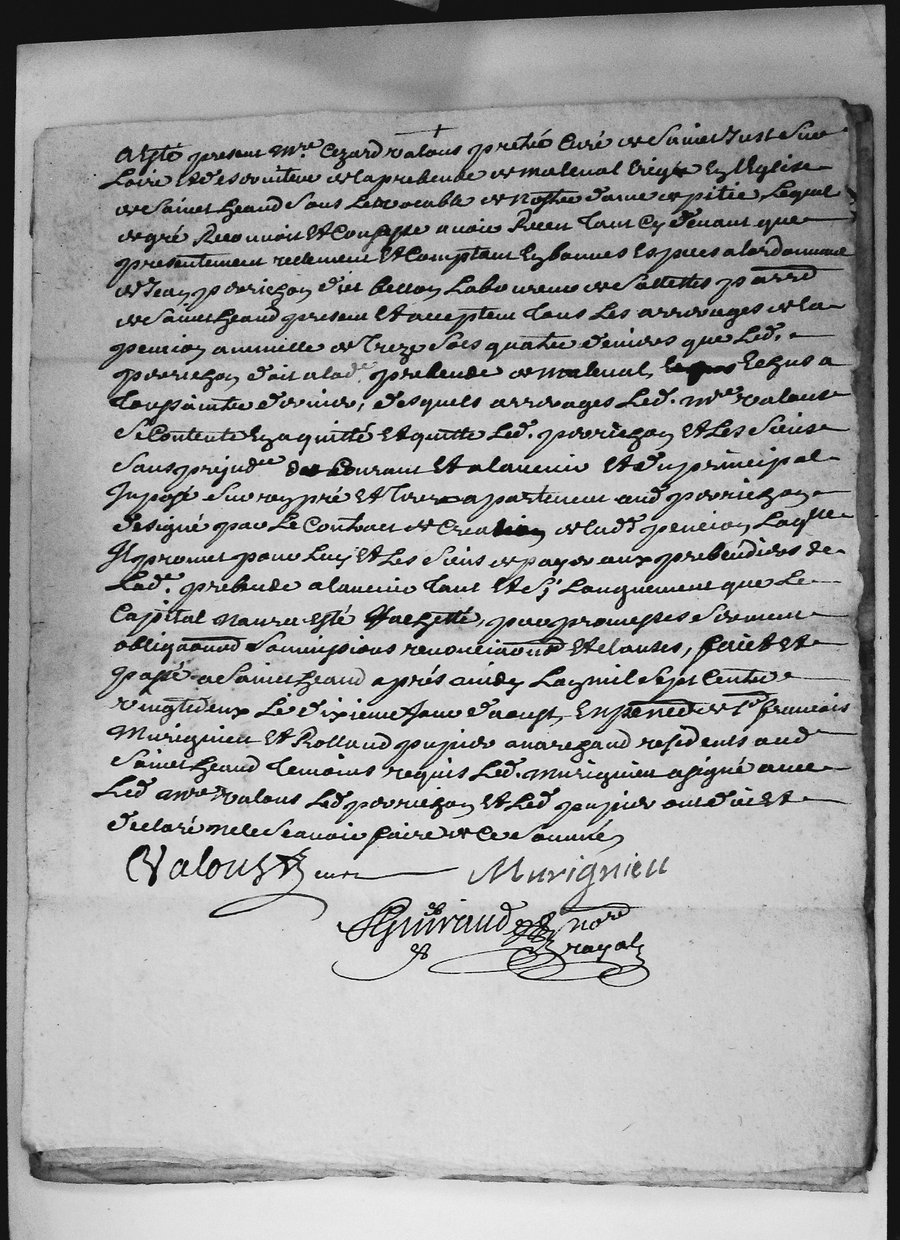 A esté present Mre Cezard Valous prestre Curé de Sainct Just Sur
Loire et deserviteur de la prebende de maleval erigée En l'Eglise
de Sainct heand Sous le vocable de Nostre dame de pitie, Lequel
de gré Reconnoit et Confesse avoir Receu tant Cy devant que
presentement reelement et Comptant En bonnes Espèces a lordonnance
de Jean poerichon dit Laboureur de Sallettes parr.
de Sainct heand present et acceptent tous les arrerages de la
pencion annuelle de treze Sols quatre deniers que Led.
poerichon doit a lad. prebende de maleval, Echus a
toussaintz dernier, desquels arrerages Led. Mre Valous
Se Contente En a quitté et quitte Led. poerichon et Les Siens
Sans prejudce du Courant et a lavenir et du principal
Imposé Sur un pré et terre apartenent aud poerichon
designé par le Contract de Creation de lad. pencion Laqlle
Il promet pour Luy et Les Siens de payer aux prebendiers de
Lad. prebende a lavenir tant et Si Longuement que Le
Capital naura esté Rachetté, par promesses Serment
obligaōns Soumissions renonciaōns et clauses, faict et
passé a Sainct heand aprés midy Lan mil Sept Centz
vingt deux Le dixieme Jour daoust, En pnce de Sr. francois
Murignieu et Rolland pujier marchand residents aud
Sainct heand temoins requis Led. murignieu a signé avec
Led Mre Valous Led poerichon et Led pujier ont dict
declaré ne le Scavoir faire de Ce Sommés
CValous Murignieu
Guiraud nore
royal